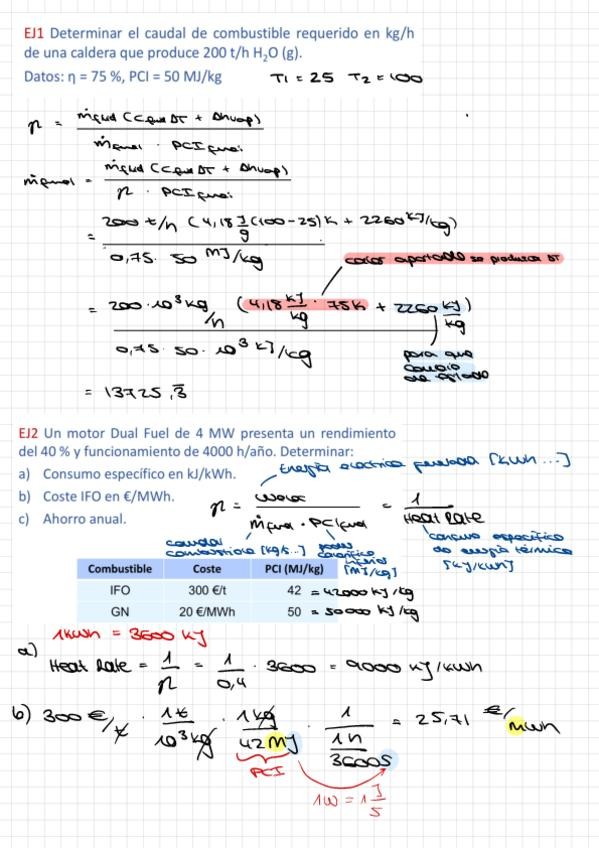 EJ1 Determinar el caudal de combustible requerido en kg/h
de una caldera que produce 200 t/h H₂O (g).
Datos: η = 75 %, PCI = 50 MJ/kg T1 = 25 T2 = 100
η = ṁfluid (C fluid ΔT + Δhvap) / ṁfuel · PCI fuel
ṁfuel = ṁfluid (C fluid ΔT + Δhvap) / η · PCI fuel
= 200 t/h (4,18 J/g (100-25) K + 2260 kJ/kg) / 0,75 · 50 MJ/kg
calor aportado se produzca ΔT
= 200·10³ kg/h (4,18 kJ/kg · 75K + 2260 kJ/kg) / 0,75 · 50 · 10³ kJ/kg
para que
cambie
de estado
= 13725,3̄
EJ2 Un motor Dual Fuel de 4 MW presenta un rendimiento
del 40 % y funcionamiento de 4000 h/año. Determinar:
Energía eléctrica generada [kWh ...]
a) Consumo específico en kJ/kWh.
b) Coste IFO en €/MWh.
c) Ahorro anual.
η = / ṁfuel · PCIfuel = 1 / Heat Rate
caudal
combustible [kg/s...]
poder
calorífico
inferior
[MJ/kg]
consumo específico
de energía térmica
[kJ/kWh]
Combustible Coste PCI (MJ/kg)
IFO 300 €/t 42 = 42000 kJ/kg
GN 20 €/MWh 50 = 50000 kJ/kg
1kWh = 3600 kJ
a) Heat Rate = 1/η = 1/0,4 · 3600 = 9000 kJ/kWh
b) 300 €/t · 1t/10³kg · 1kg/42MJ · 1/(1h/3600s) = 25,71 €/MWh
PCI
1W = 1 J/s